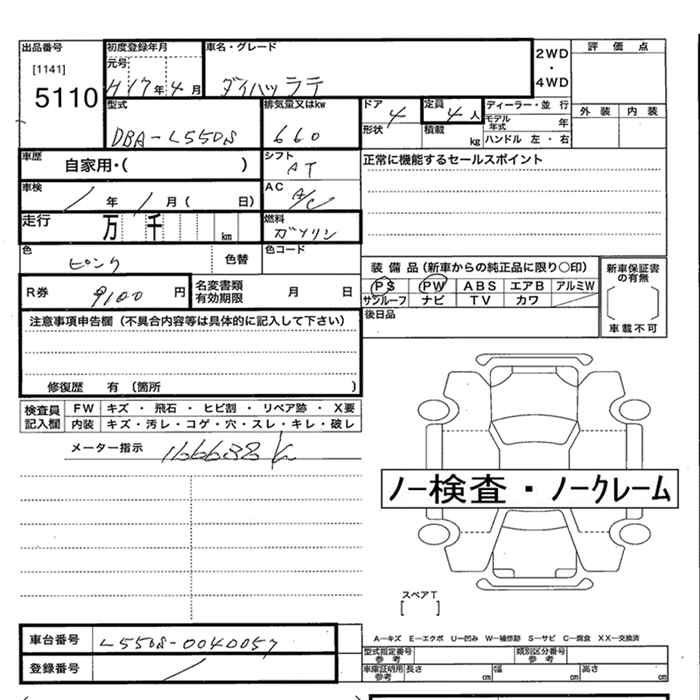 出品番号
[1141]
5110
初度登録年月
元号
H17年4月
車名・グレード
ダイハツ ラテ
2WD
・
4WD
評価点
外装 内装
型式
DBA-L550S
排気量又はkw
660
ドア
4
形状
定員
4人
積載
kg
ディーラー・並行
モデル年式 年
ハンドル 左・右
車歴
自家用・( )
シフト
AT
正常に機能するセールスポイント
車検
/年 /月( 日)
AC
A/C
走行
万 千 km
燃料
ガソリン
色
ピンク
色替
色コード
装備品(新車からの純正品に限り○印)
PS PW ABS エアB アルミW
サンルーフ ナビ TV カワ
新車保証書の有無
[ ]
車載不可
R券
9100円
名変書類有効期限
月 日
後日品
注意事項申告欄(不具合内容等は具体的に記入して下さい)
修復歴 有(箇所 )
検査員記入欄
FW キズ・飛石・ヒビ割・リペア跡・X要
内装 キズ・汚レ・コゲ・穴・スレ・キレ・破レ
メーター指示
166638K
ノー検査・ノークレーム
スペアT
[ ]
車台番号
L550S-0040057
登録番号
/
A-キズ E-エクボ U-凹み W-補修跡 S-サビ C-腐食 XX-交換済
型式指定番号 参考
類別区分番号 参考
車庫証明用 参考
長さ cm 幅 cm 高さ cm